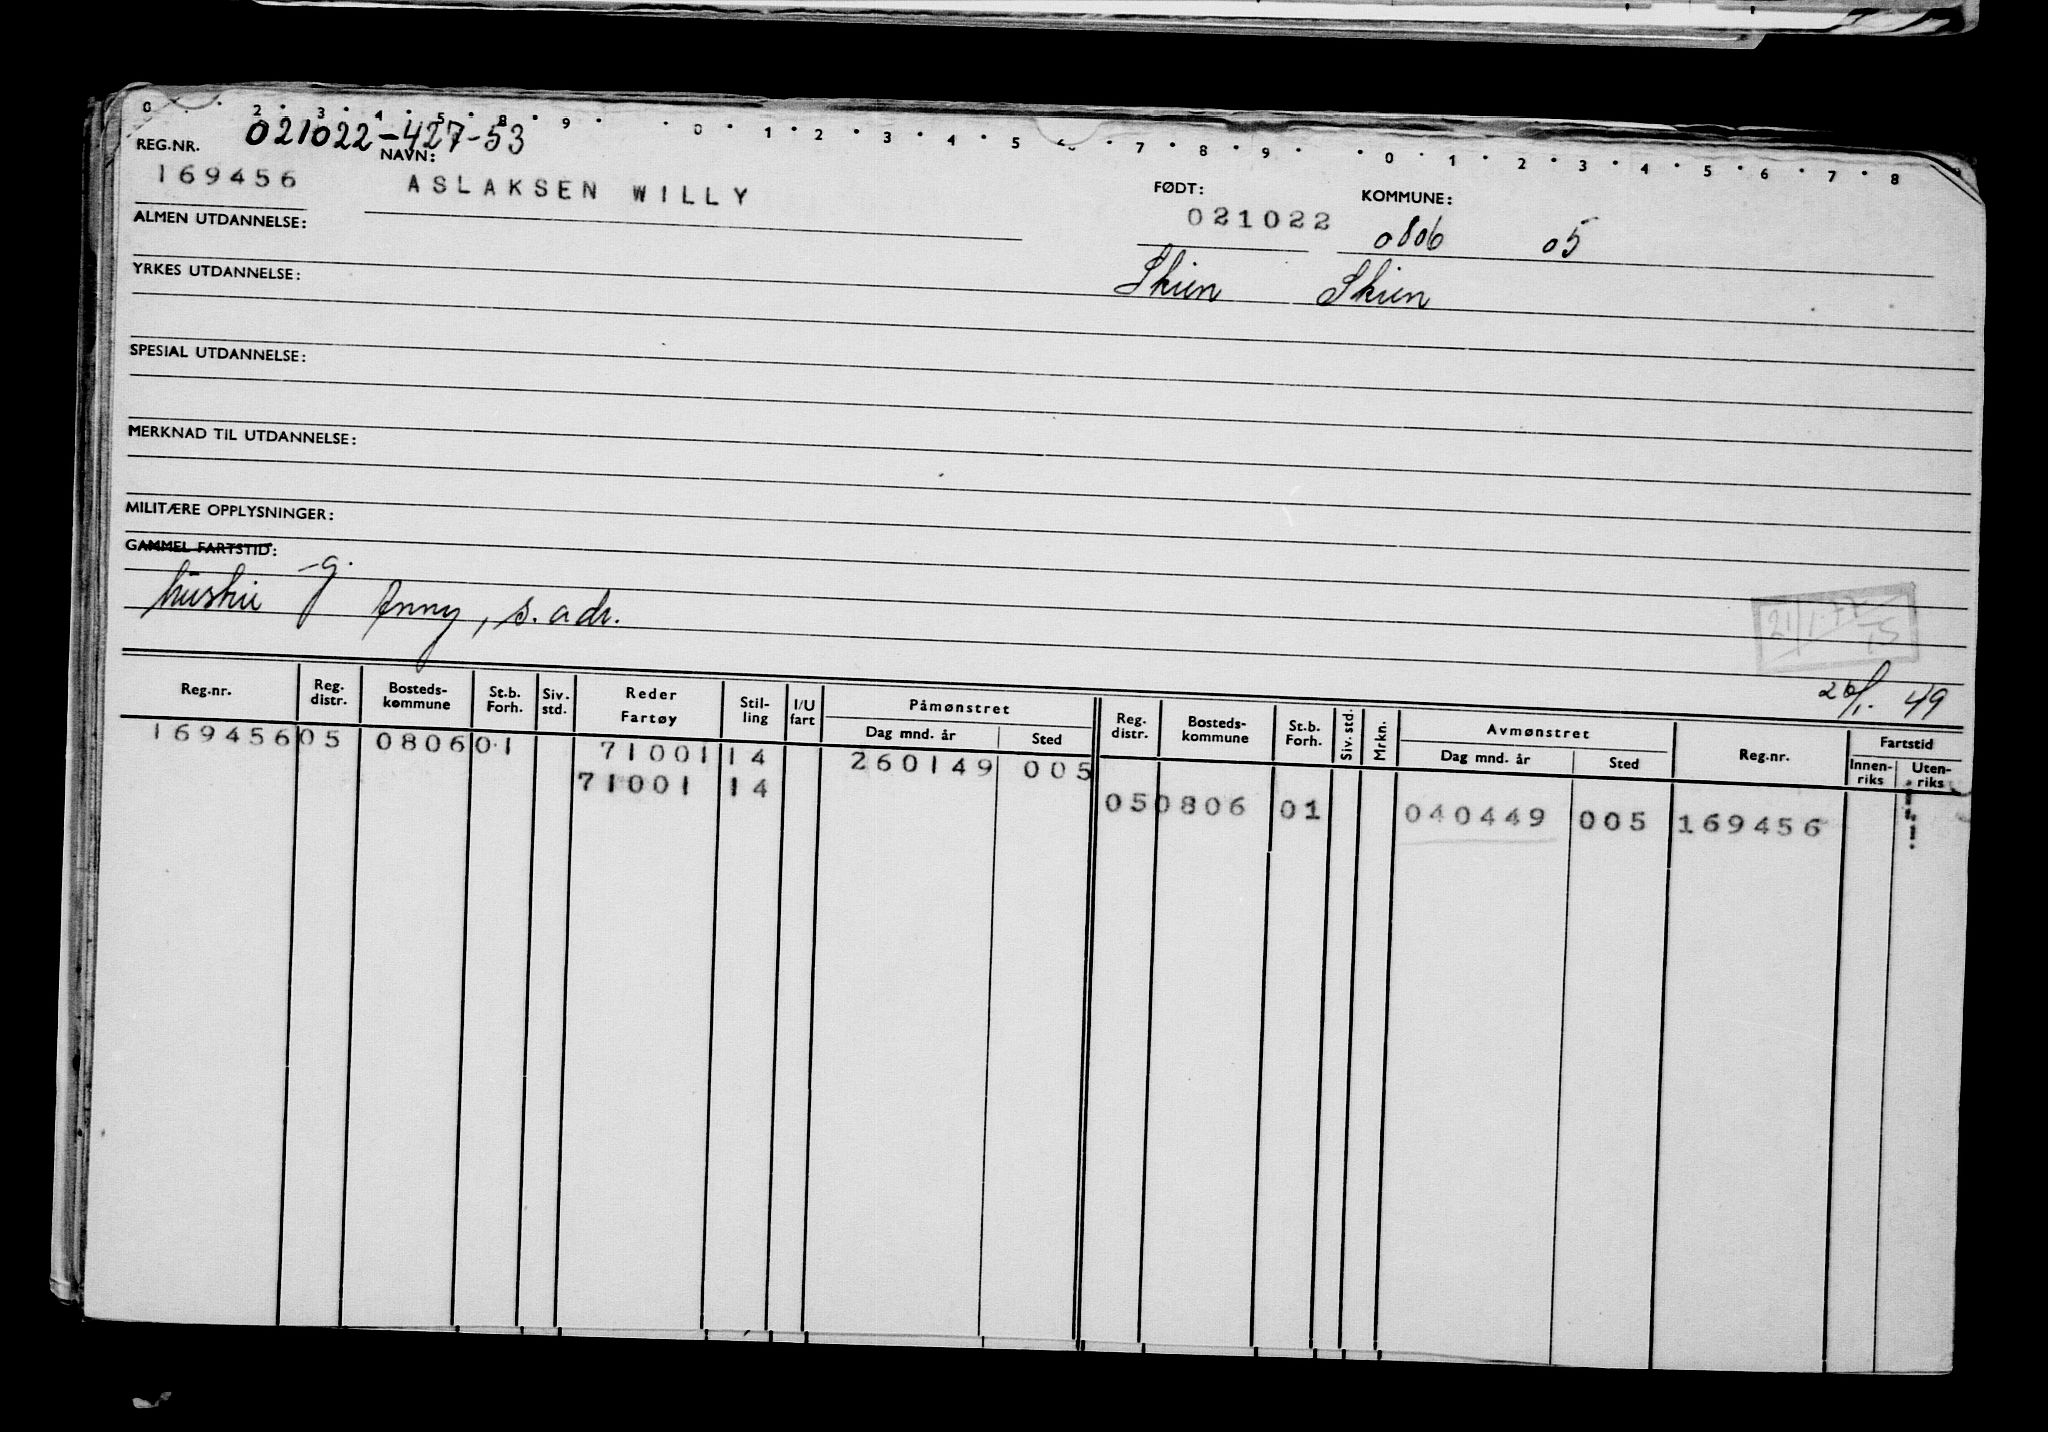 0 2 3 4 5 8 9 0 1 2 3 4 5 6 7 8 9 0 1 2 3 4 5 6 7 8
021022-427-53
REG.NR. NAVN: FØDT: KOMMUNE:
169456 ASLAKSEN WILLY 021022 0806 05
ALMEN UTDANNELSE:
Skien Skien
YRKES UTDANNELSE:
SPESIAL UTDANNELSE:
MERKNAD TIL UTDANNELSE:
MILITÆRE OPPLYSNINGER:
GAMMEL FARTSTID:
-g.
hustru Anny, s. adr.
26/1. 49
Reg.nr. Reg. distr. Bosteds-kommune St.b. Forh. Siv. std. Reder Fartøy Stil-ling I/U fart Påmønstret Dag mnd. år Sted Reg. distr. Bosteds-kommune St.b. Forh. Siv. std. Mrkn. Avmønstret Dag mnd. år Sted Reg.nr. Fartstid Innen-riks Uten-riks
169456 05 0806 01 71001 14 260149 005
71001 14 05 0806 01 040449 005 169456